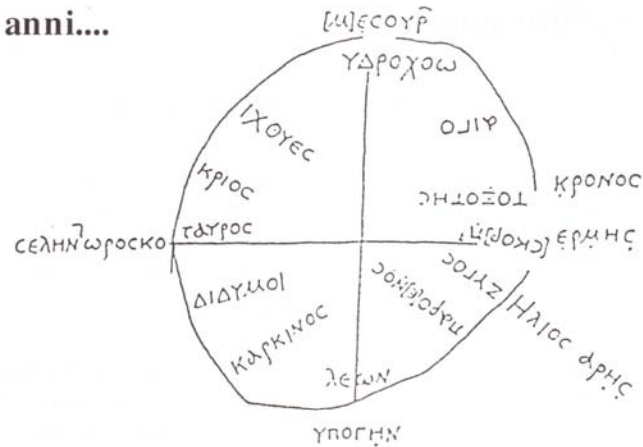 anni....
[μ]εσουρ̑
υδροχοω
ιχθυες
αιγο
κριος
τοξοτης
κρονος
σεληνη ωροσκο
ταυρος
[σκορ]π
ερμης
διδυμοι
ζυγος
παρθ[ε]νος
ηλιος αρης
καρκινος
λεων
υπογην